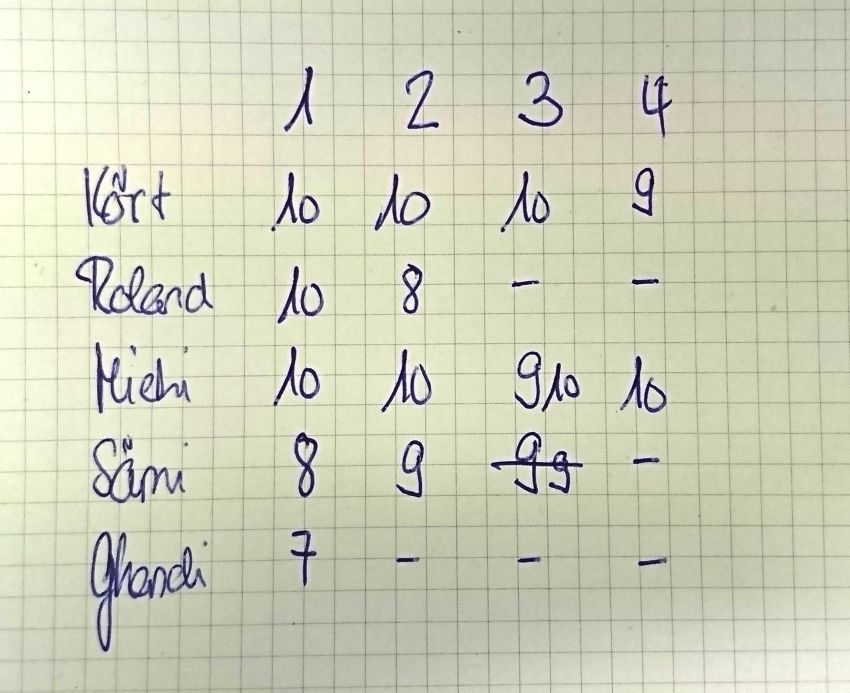 1 2 3 4
Kört 10 10 10 9
Roland 10 8 - -
Michi 10 10 9 10 10
Sämi 8 9 9 9 -
Ghandi 7 - - -